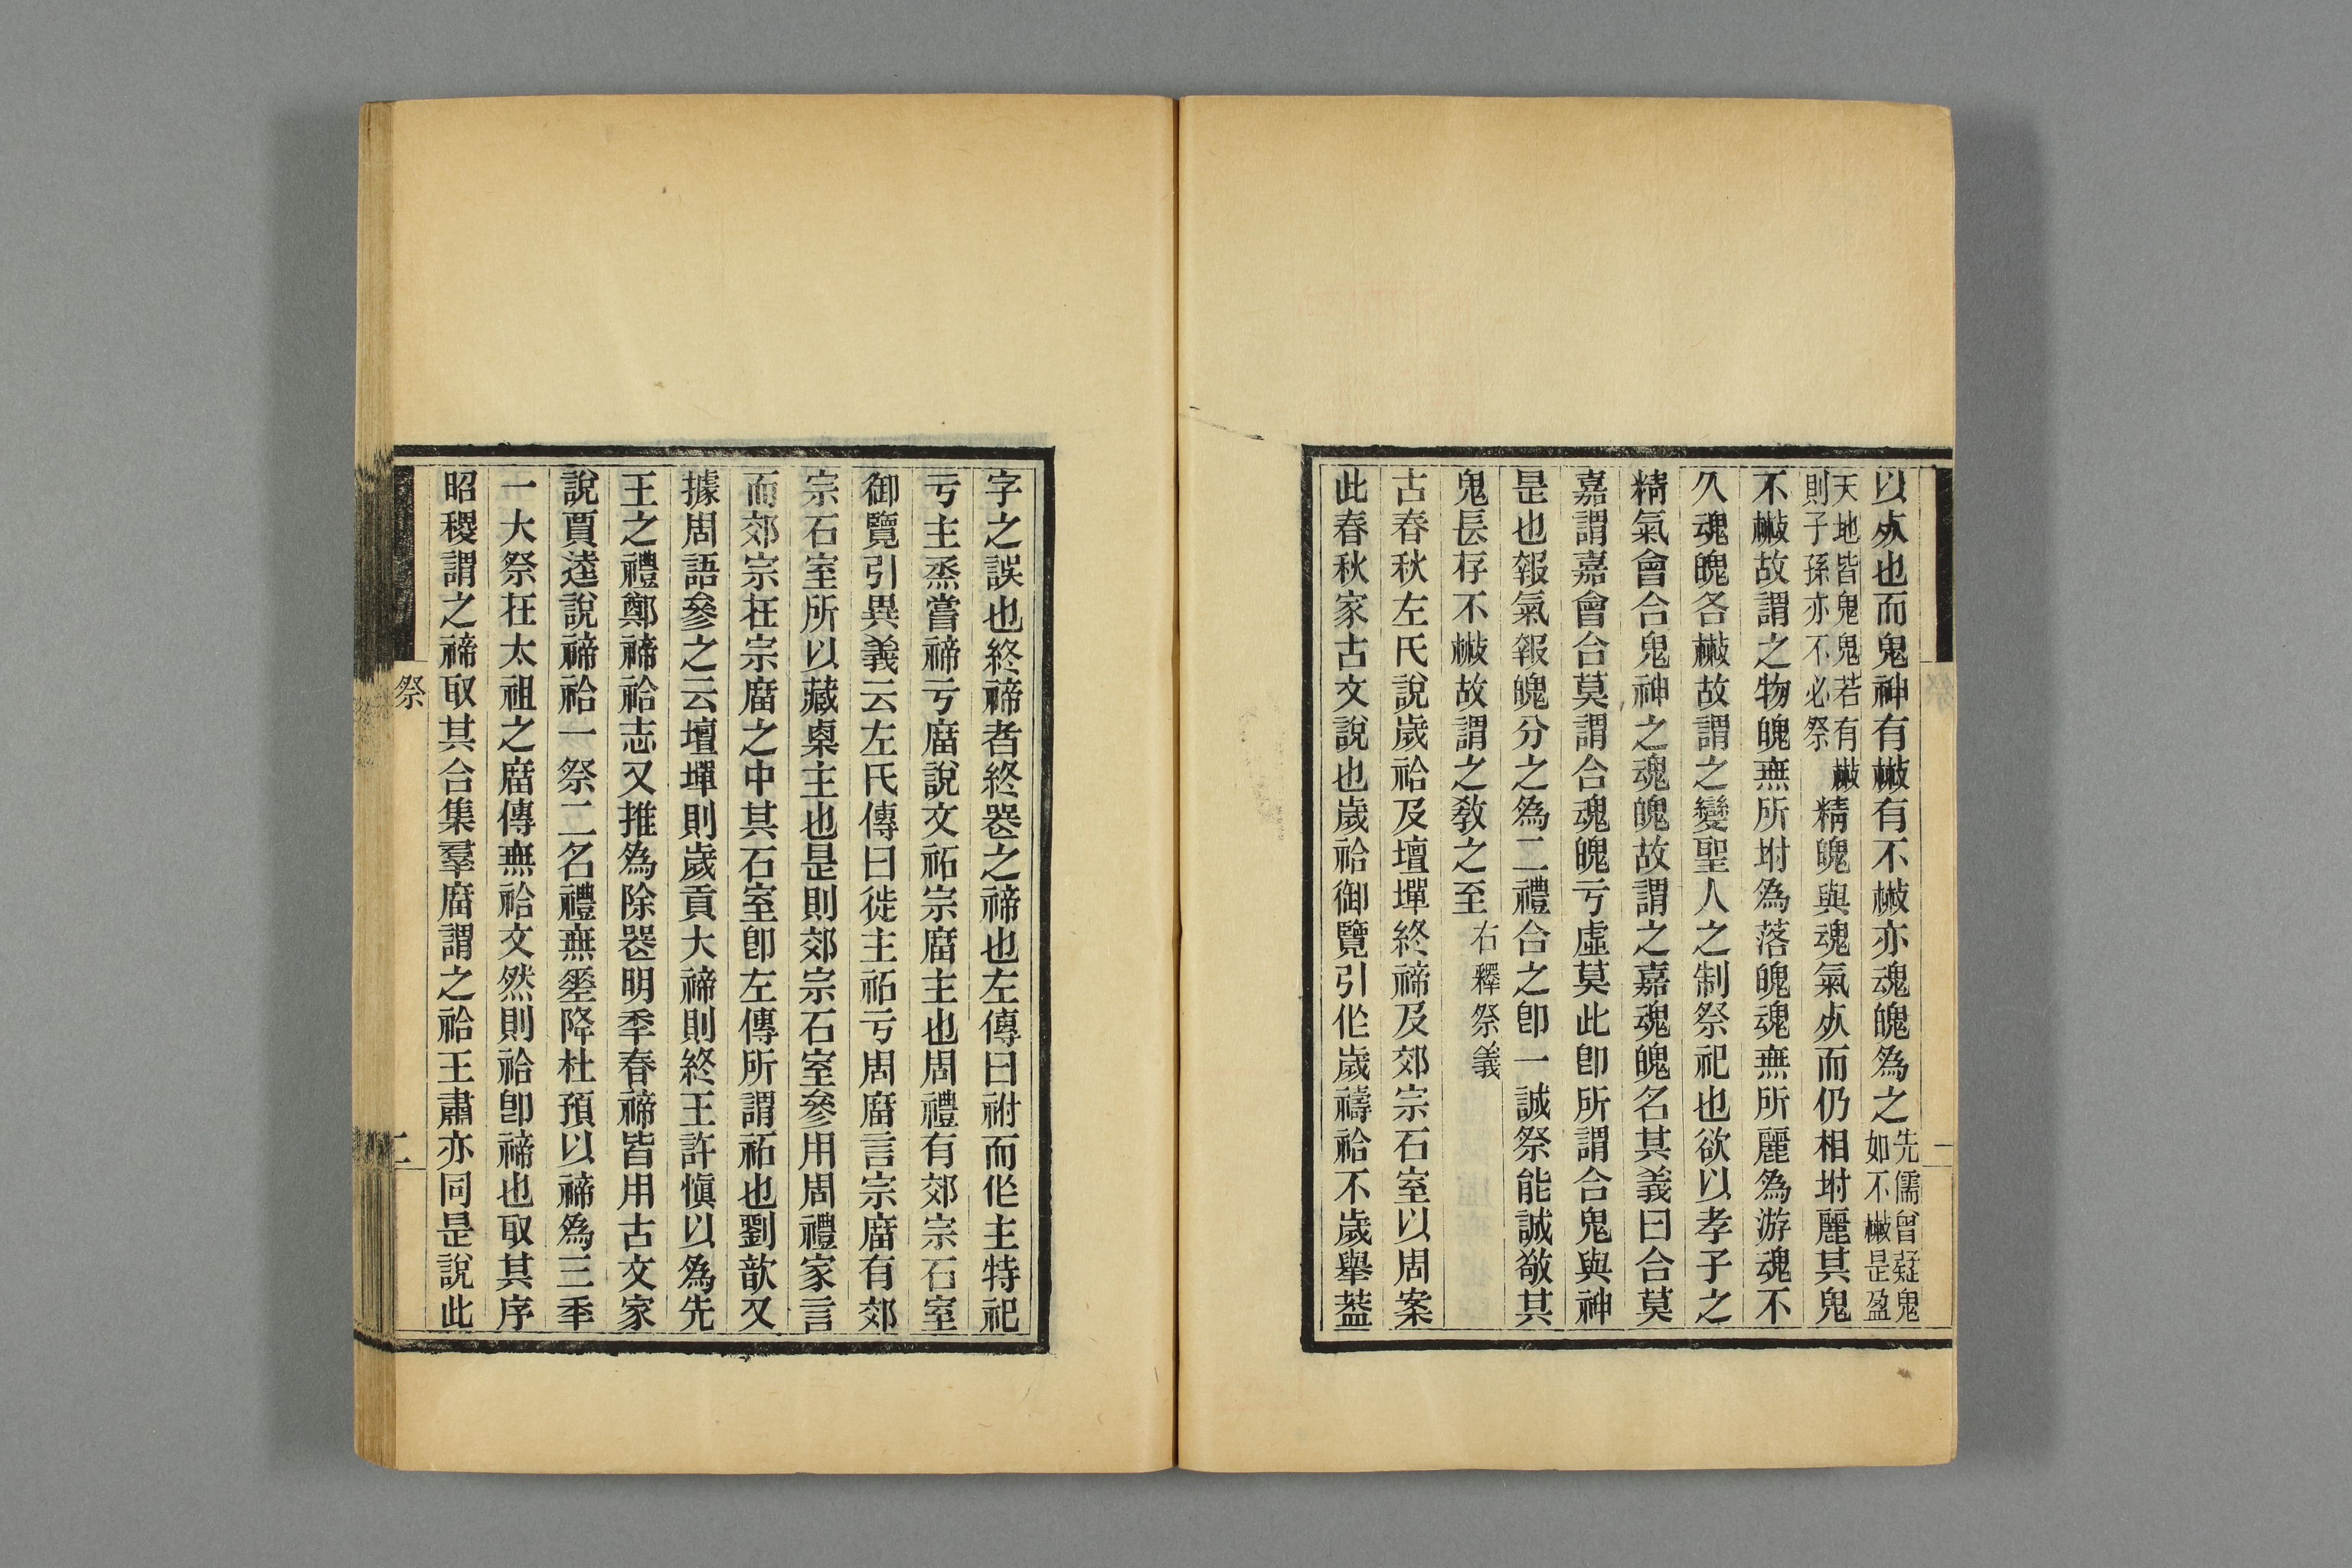 以𣦸也而鬼神有㪔有不㪔亦魂魄為之先儒曾疑鬼如不㪔是盈
天地皆鬼鬼若有㪔則子孫亦不必祭精魄與魂氣𣦸而仍相坿麗其鬼
不㪔故謂之物魄無所坿為落魄魂無所麗為游魂不
久魂魄各㪔故謂之變聖人之制祭祀也欲以孝子之
精氣會合鬼神之魂魄故謂之嘉魂魄名其義曰合莫
嘉謂嘉會合莫謂合魂魄亏虛莫此卽所謂合鬼與神
是也報氣報魄分之為二禮合之卽一誠祭能誠敬其
鬼長存不㪔故謂之敎之至右釋祭義
古春秋左氏說歲祫及壇墠終禘及郊宗石室以周案
此春秋家古文說也歲祫御覽引作歲禱祫不歲舉葢
字之誤也終禘者終器之禘也左傳曰祔而作主特祀
亏主烝嘗禘亏庿說文祏宗庿主也周禮有郊宗石室
御覽引異義云左氏傳曰徙主祏亏周庿言宗庿有郊
宗石室所以藏㮚主也是則郊宗石室參用周禮家言
而郊宗在宗庿之中其石室卽左傳所謂祏也劉歆又
據周語參之云壇墠則歲貢大禘則終王許愼以為先
王之禮鄭禘祫志又推為除器明秊春禘皆用古文家
說賈逵說禘祫一祭二名禮無𨤲降杜預以禘為三秊
一大祭在太祖之庿傳無祫文然則祫卽禘也取其序
昭穆謂之禘取其合集羣庿謂之祫王肅亦同是說此
祭
二